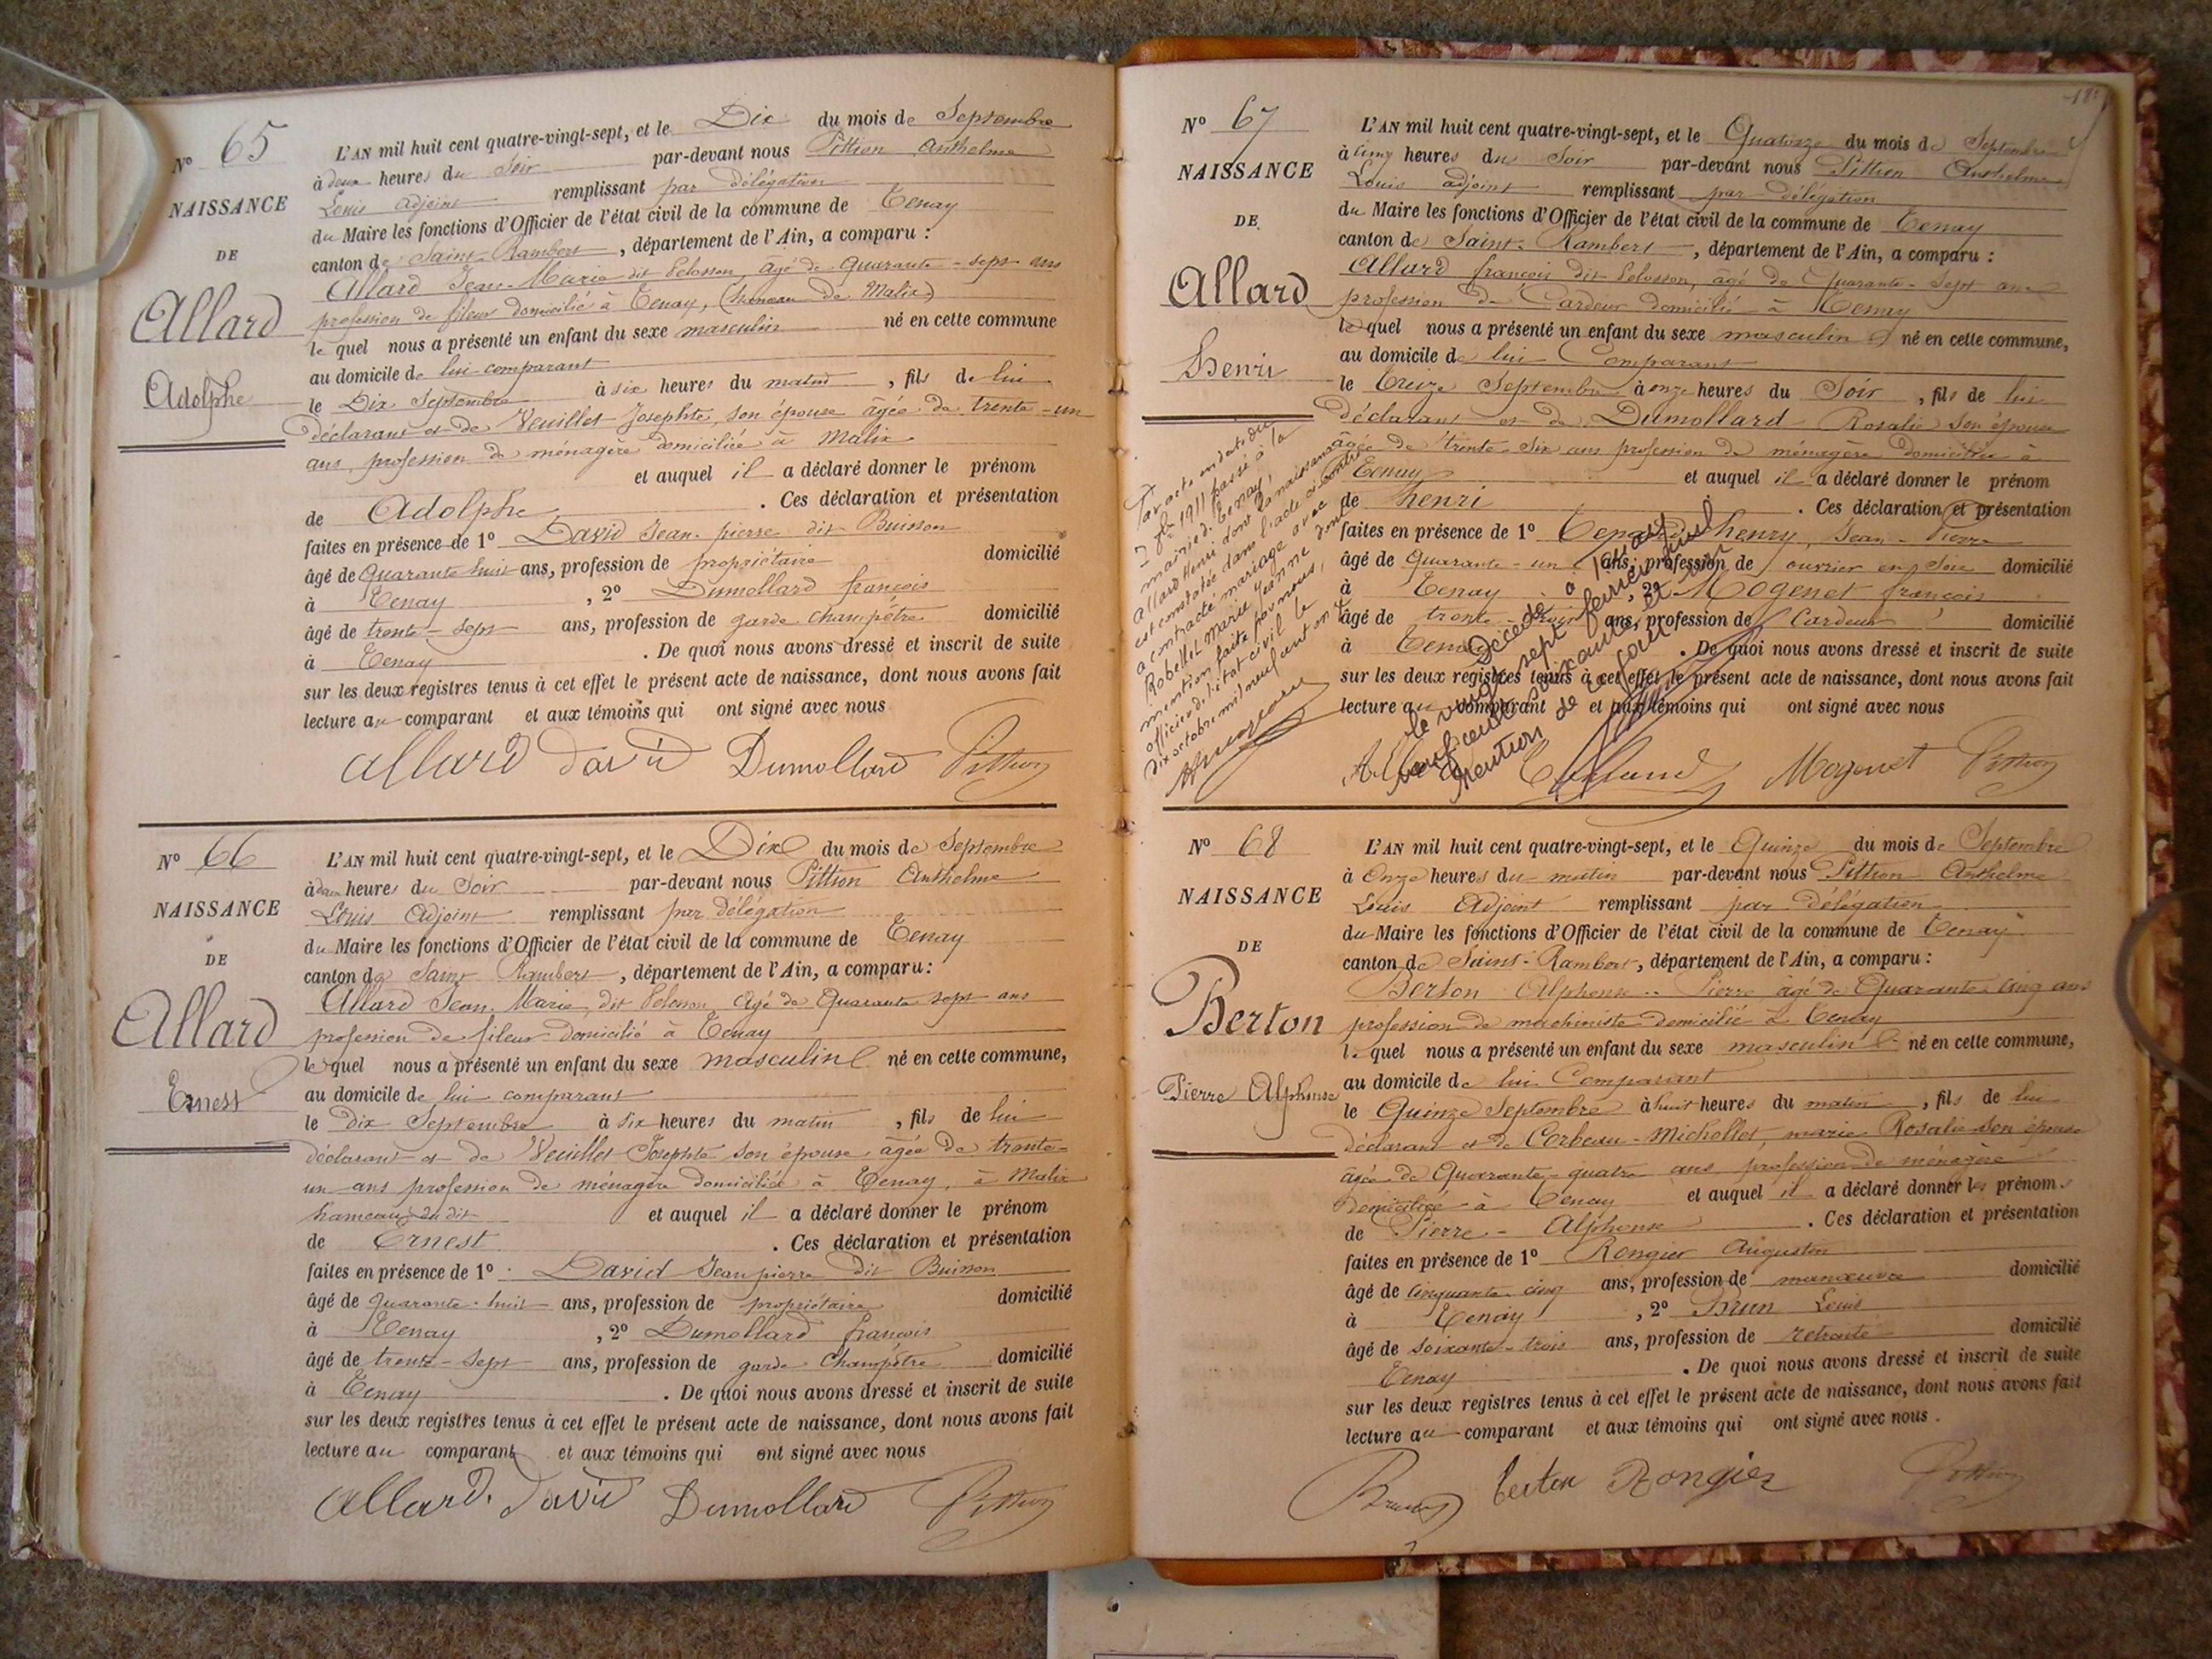 Nº 65
NAISSANCE
DE
Allard
Adolphe
L'AN mil huit cent quatre-vingt-sept, et le Dix du mois de Septembre
à deux heures du Soir par-devant nous Pittion Anthelme
Louis Adjoint remplissant par délégation
du Maire les fonctions d'Officier de l'état civil de la commune de Tenay
canton de Saint-Rambert, département de l'Ain, a comparu :
Allard Jean-Marie dit Pelosson, âgé de Quarante-sept ans
profession de fileur domicilié à Tenay, (hameau de Malix)
le quel nous a présenté un enfant du sexe masculin né en cette commune
au domicile de lui comparant
le Dix Septembre à six heures du matin, fils de lui
déclarant et de Veuillet Josephte, son épouse âgée de trente-un
ans, profession de ménagère domiciliée à Malix
et auquel il a déclaré donner le prénom
de Adolphe. Ces déclaration et présentation
faites en présence de 1º David Jean-pierre dit Buisson
âgé de Quarante huit ans, profession de propriétaire domicilié
à Tenay, 2º Dumollard françois
âgé de trente-sept ans, profession de garde champêtre domicilié
à Tenay. De quoi nous avons dressé et inscrit de suite
sur les deux registres tenus à cet effet le présent acte de naissance, dont nous avons fait
lecture au comparant et aux témoins qui ont signé avec nous
allard david Dumollard Pittion
Nº 66
NAISSANCE
DE
Allard
Ernest
L'AN mil huit cent quatre-vingt-sept, et le Dix du mois de Septembre
à deux heures du Soir par-devant nous Pittion Anthelme
Louis Adjoint remplissant par délégation
du Maire les fonctions d'Officier de l'état civil de la commune de Tenay
canton de Saint Rambert, département de l'Ain, a comparu :
Allard Jean-Marie, dit Pelosson, âgé de Quarante sept ans
profession de fileur domicilié à Tenay
le quel nous a présenté un enfant du sexe masculin né en cette commune,
au domicile de lui comparant
le dix Septembre à six heures du matin, fils de lui
déclarant et de Veuillet Josephte son épouse âgée de trente-
un ans profession de ménagère domiciliée à Tenay, à Malix
hameau du dit et auquel il a déclaré donner le prénom
de Ernest. Ces déclaration et présentation
faites en présence de 1º David Jean pierre dit Buisson
âgé de quarante-huit ans, profession de propriétaire domicilié
à Tenay, 2º Dumollard françois
âgé de trente-sept ans, profession de garde champêtre domicilié
à Tenay. De quoi nous avons dressé et inscrit de suite
sur les deux registres tenus à cet effet le présent acte de naissance, dont nous avons fait
lecture au comparant et aux témoins qui ont signé avec nous
allard. david Dumollard Pittion
Nº 67
NAISSANCE
DE
Allard
henri
L'AN mil huit cent quatre-vingt-sept, et le Quatorze du mois de Septembre
à cinq heures du Soir par-devant nous Pittion Anthelme
Louis adjoint remplissant par délégation
du Maire les fonctions d'Officier de l'état civil de la commune de Tenay
canton de Saint-Rambert, département de l'Ain, a comparu :
Allard françois dit Pelosson, âgé de Quarante-Sept ans
profession de Cardeur domicilié à Tenay
le quel nous a présenté un enfant du sexe masculin né en cette commune,
au domicile de lui Comparant
le treize Septembre à onze heures du Soir, fils de lui
déclarant et de Dumollard Rosalie son épouse
âgée de trente-six ans profession de ménagère domiciliée à
Tenay et auquel il a déclaré donner le prénom
de henri. Ces déclaration et présentation
faites en présence de 1º henry, Jean-Pierre
âgé de quarante-un ans, profession de ouvrier en soie domicilié
à Tenay, 2º Mogenet françois
âgé de trente-trois ans, profession de Cardeur domicilié
à Tenay. De quoi nous avons dressé et inscrit de suite
sur les deux registres tenus à cet effet le présent acte de naissance, dont nous avons fait
lecture au comparant et aux témoins qui ont signé avec nous
Mogenet Pittion
Par acte en date du
7 8bre 1911 passé à la
mairie d. Tenay,
Allard Henri dont la naissance
est constatée dans l'acte ci-contre
a contracté mariage avec
Robellet Marie Jeanne dont
mention faite par nous,
officier d'état civil le
dix octobre mil neuf cent onze
Décédé à
le vingt sept février mil
neuf cent soixante et un
Mention de ce jour
Nº 68
NAISSANCE
DE
Berton
Pierre Alphonse
L'AN mil huit cent quatre-vingt-sept, et le Quinze du mois de Septembre
à Onze heures du matin par-devant nous Pittion Anthelme
Louis Adjoint remplissant par délégation
du Maire les fonctions d'Officier de l'état civil de la commune de Tenay
canton de Saint-Rambert, département de l'Ain, a comparu :
Berton Alphonse-Pierre, âgé de Quarante-Cinq ans
profession de machiniste domicilié à Tenay
le quel nous a présenté un enfant du sexe masculin né en cette commune,
au domicile de lui Comparant
le Quinze Septembre à huit heures du matin, fils de lui
déclarant et de Corbeau-Michollet, marie Rosalie son épouse
âgée de Quarante-quatre ans profession de ménagère
domiciliée à Tenay et auquel il a déclaré donner les prénoms
de Pierre-Alphonse. Ces déclaration et présentation
faites en présence de 1º Rongier Augustin
âgé de cinquante cinq ans, profession de manœuvre domicilié
à Tenay, 2º Brun Louis
âgé de soixante-trois ans, profession de retraité domicilié
Tenay. De quoi nous avons dressé et inscrit de suite
sur les deux registres tenus à cet effet le présent acte de naissance, dont nous avons fait
lecture au comparant et aux témoins qui ont signé avec nous.
Brun berton Rongier Pittion